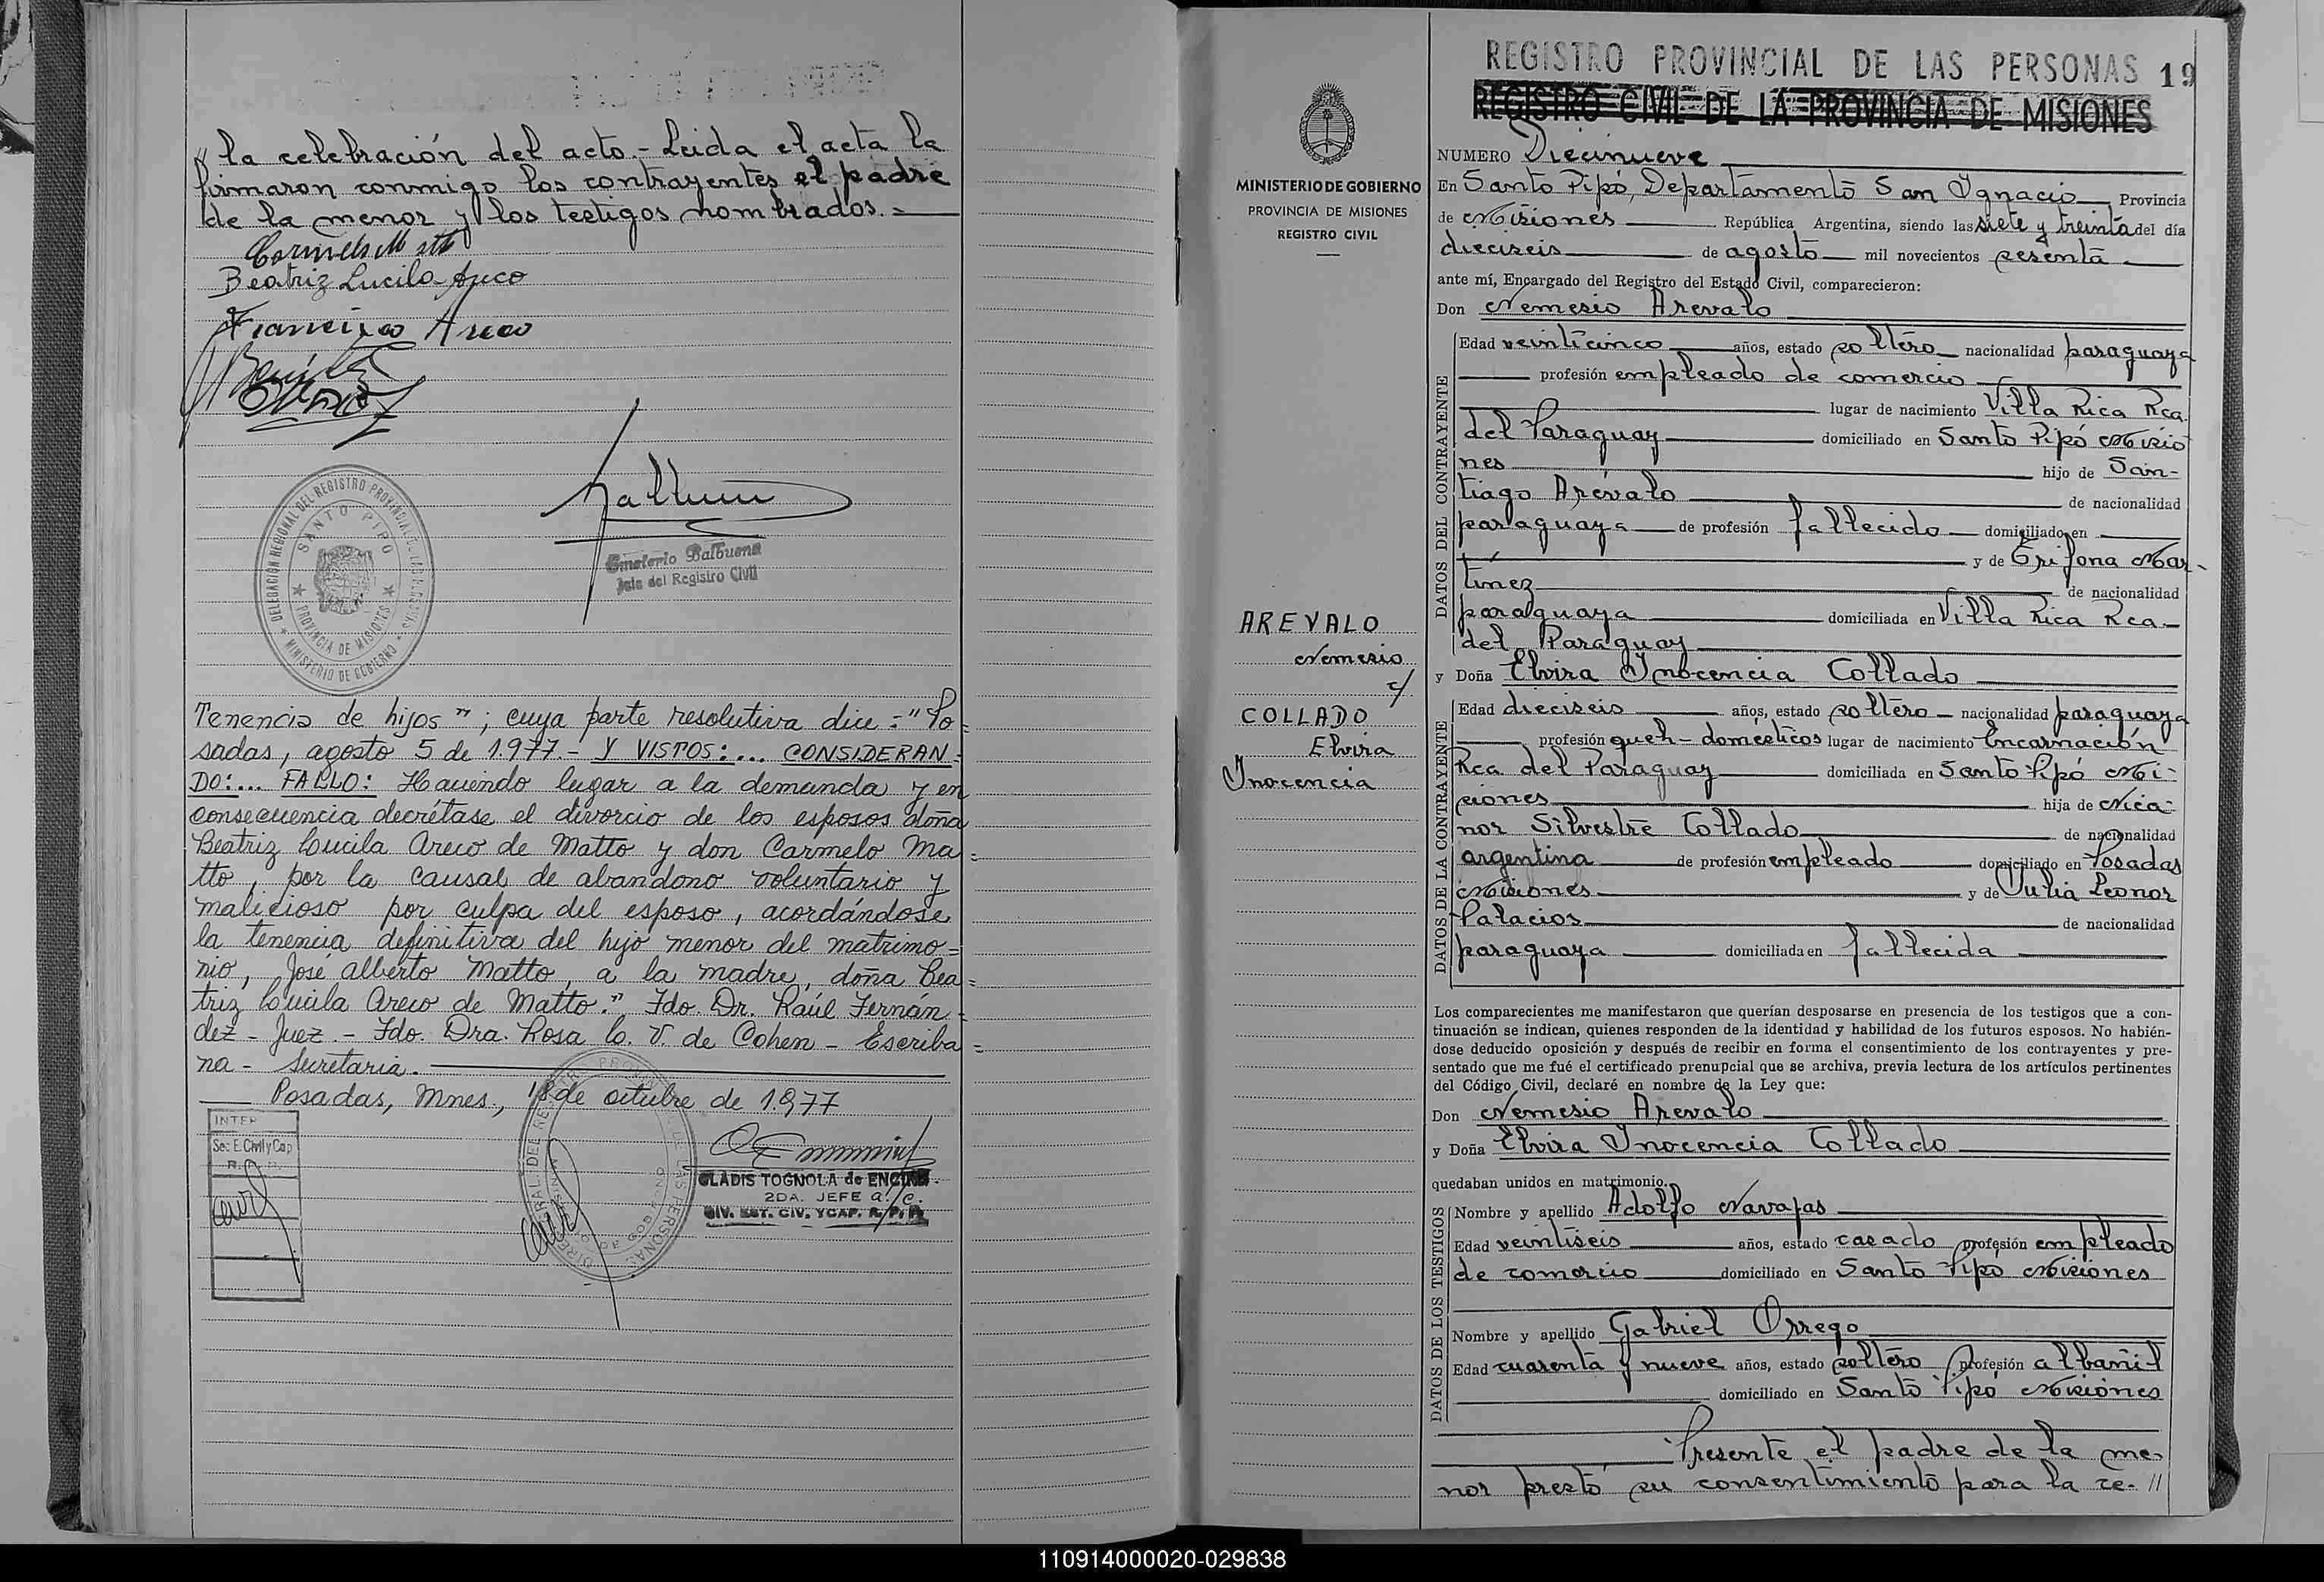 la celebración del acto.- Leida el acta la
firmaron conmigo los contrayentes el padre
de la menor y los testigos nombrados.=
Beatriz Lucila Areco
Francisco Areco
DELEGACIÓN REGIONAL DEL REGISTRO PROVINCIAL DE LAS PERSONAS
SANTO PIPO
PROVINCIA DE MISIONES
MINISTERIO DE GOBIERNO
Emeterio Balbuena
Jefe del Registro Civil
Tenencia de hijos"; cuya parte resolutiva dice:="Po=
sadas, agosto 5 de 1.977.- Y VISTOS:... CONSIDERAN=
DO:... FALLO: Haciendo lugar a la demanda y en
consecuencia decrétase el divorcio de los esposos doña
Beatriz Lucila Areco de Matto y don Carmelo Ma=
tto, por la causal de abandono voluntario y
malicioso por culpa del esposo, acordándose
la tenencia definitiva del hijo menor del matrimo=
nio, José Alberto Matto, a la madre, doña Bea=
triz Lucila Areco de Matto." Fdo. Dr. Raúl Fernán=
dez - Juez.- Fdo. Dra. Rosa C. V. de Cohen - Escriba=
na - Secretaria.
Posadas, Mnes., 18 de octubre de 1.977
INTER
Sec E. Civil y Cap
GLADIS TOGNOLA de ENCINA
2DA. JEFE a/c.
DIV. EST. CIV. Y CAP. R. P. P.
REGISTRO PROVINCIAL DE LAS PERSONAS 19
REGISTRO CIVIL DE LA PROVINCIA DE MISIONES
MINISTERIO DE GOBIERNO
PROVINCIA DE MISIONES
REGISTRO CIVIL
AREVALO
Nemesio
c/
COLLADO
Elvira
Inocencia
NUMERO Diecinueve
En Santo Pipó, Departamento San Ignacio Provincia
de Misiones República Argentina, siendo las siete y treinta del día
dieciseis de agosto mil novecientos sesenta
ante mí, Encargado del Registro del Estado Civil, comparecieron:
Don Nemesio Arevalo
DATOS DEL CONTRAYENTE
Edad veinticinco años, estado soltero nacionalidad paraguaya
profesión empleado de comercio
lugar de nacimiento Villa Rica Rca.
del Paraguay domiciliado en Santo Pipó Misio
nes hijo de San-
tiago Arévalo de nacionalidad
paraguaya de profesión fallecido domiciliado en
y de Grifona Mar-
tínez de nacionalidad
paraguaya domiciliada en Villa Rica Rca.
del Paraguay
y Doña Elvira Inocencia Collado
DATOS DE LA CONTRAYENTE
Edad dieciseis años, estado soltero nacionalidad paraguaya
profesión queh-domésticos lugar de nacimiento Encarnación
Rca. del Paraguay domiciliada en Santo Pipó Mi-
siones hija de Nica-
nor Silvestre Collado de nacionalidad
argentina de profesión empleado domiciliado en Posadas
Misiones y de Julia Leonor
Palacios de nacionalidad
paraguaya domiciliada en fallecida
Los comparecientes me manifestaron que querían desposarse en presencia de los testigos que a con-
tinuación se indican, quienes responden de la identidad y habilidad de los futuros esposos. No habién-
dose deducido oposición y después de recibir en forma el consentimiento de los contrayentes y pre-
sentado que me fué el certificado prenupcial que se archiva, previa lectura de los artículos pertinentes
del Código Civil, declaré en nombre de la Ley que:
Don Nemesio Arevalo
y Doña Elvira Inocencia Collado
quedaban unidos en matrimonio.
DATOS DE LOS TESTIGOS
Nombre y apellido Adolfo Navajas
Edad veintiseis años, estado casado profesión empleado
de comercio domiciliado en Santo Pipó Misiones
Nombre y apellido Gabriel Orrego
Edad cuarenta y nueve años, estado soltero profesión albañil
domiciliado en Santo Pipó Misiones
Presente el padre de la me-
nor prestó su consentimiento para la ce- //
110914000020-029838